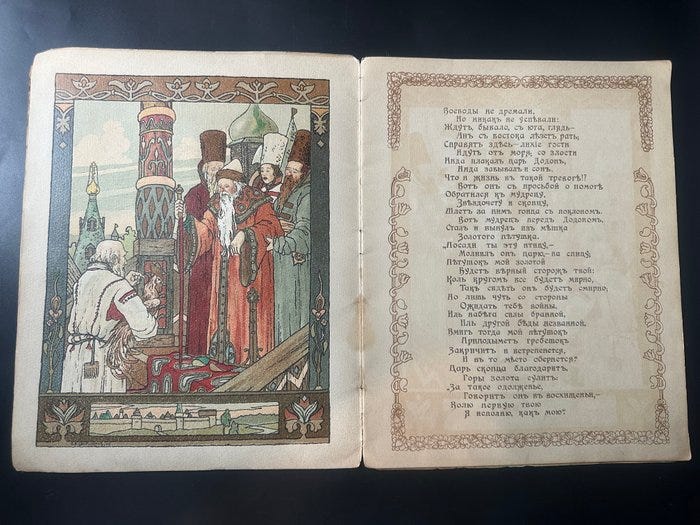 Воеводы не дремали,
Но никакъ не успѣвали:
Ждутъ, бывало, съ юга, глядь—
Анъ съ востока лѣзетъ рать,
Справятъ здѣсь—лихіе гости
Идутъ отъ моря; со злости
Инда плакалъ царь Додонъ,
Инда забывалъ и сонъ.
Что и жизнь въ такой тревогѣ!?
Вотъ онъ съ просьбой о помогѣ
Обратился къ мудрецу,
Звѣздочету и скопцу,
Шлетъ за нимъ гонца съ поклономъ.
Вотъ мудрецъ передъ Додономъ,
Сталъ и вынулъ изъ мѣшка
Золотого пѣтушка.
„Посади ты эту птицу,—
Молвилъ онъ царю,—на спицу;
Пѣтушокъ мой золотой
Будетъ вѣрный сторожъ твой:
Коль кругомъ все будетъ мирно,
Такъ сидѣть онъ будетъ смирно;
Но лишь чуть со стороны
Ожидать тебѣ войны,
Иль набѣга силы бранной,
Иль другой бѣды незванной,
Вмигъ тогда мой пѣтушокъ
Приподыметъ гребешокъ
Закричитъ и встрепенется,
И въ то мѣсто обернется?
Царь скопца благодаритъ,
Горы золота сулитъ.
„За такое одолженье,
Говоритъ онъ въ восхищеньи,—
Волю первую твою
Я исполню, какъ мою?